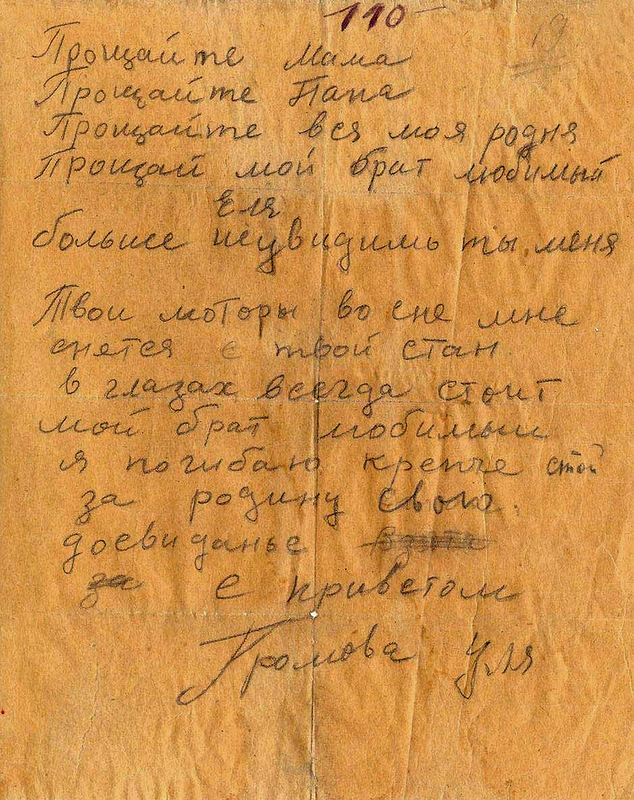 110
19
Прощайте Мама
Прощайте Папа
Прощайте вся моя родня
Прощай мой брат любимый
Еля
больше неувидишь ты меня
Твои моторы во сне мне
снятся е твой стан
в глазах всегда стоит
мой брат любимый
я погибаю крепче стой
за родину свою.
досвиданье
за
С приветом
Громова Уля